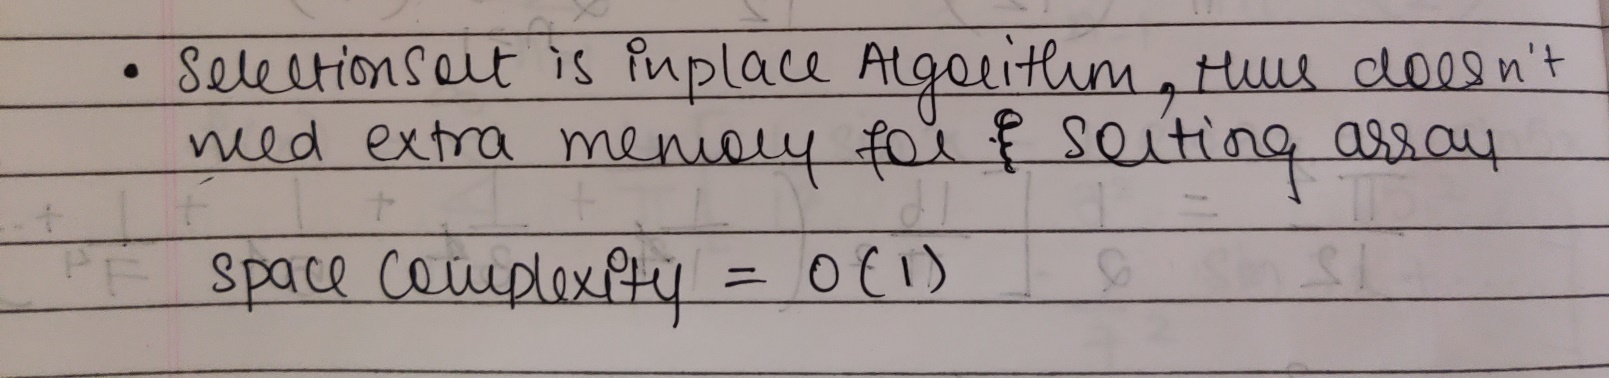 • Selectionsort is inplace Algorithm, thus doesn't
need extra memory for & sorting array
space complexity = O(1)